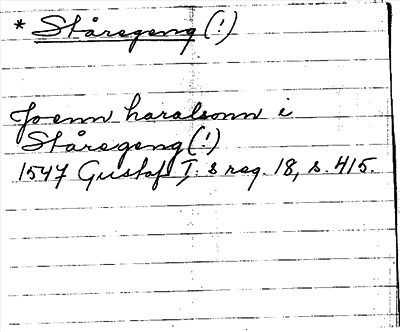 * Stårsgeng (!)
Joenn haralsonn i
Stårsgeng (!)
1547 Gustaf I:s reg. 18, s. 415.